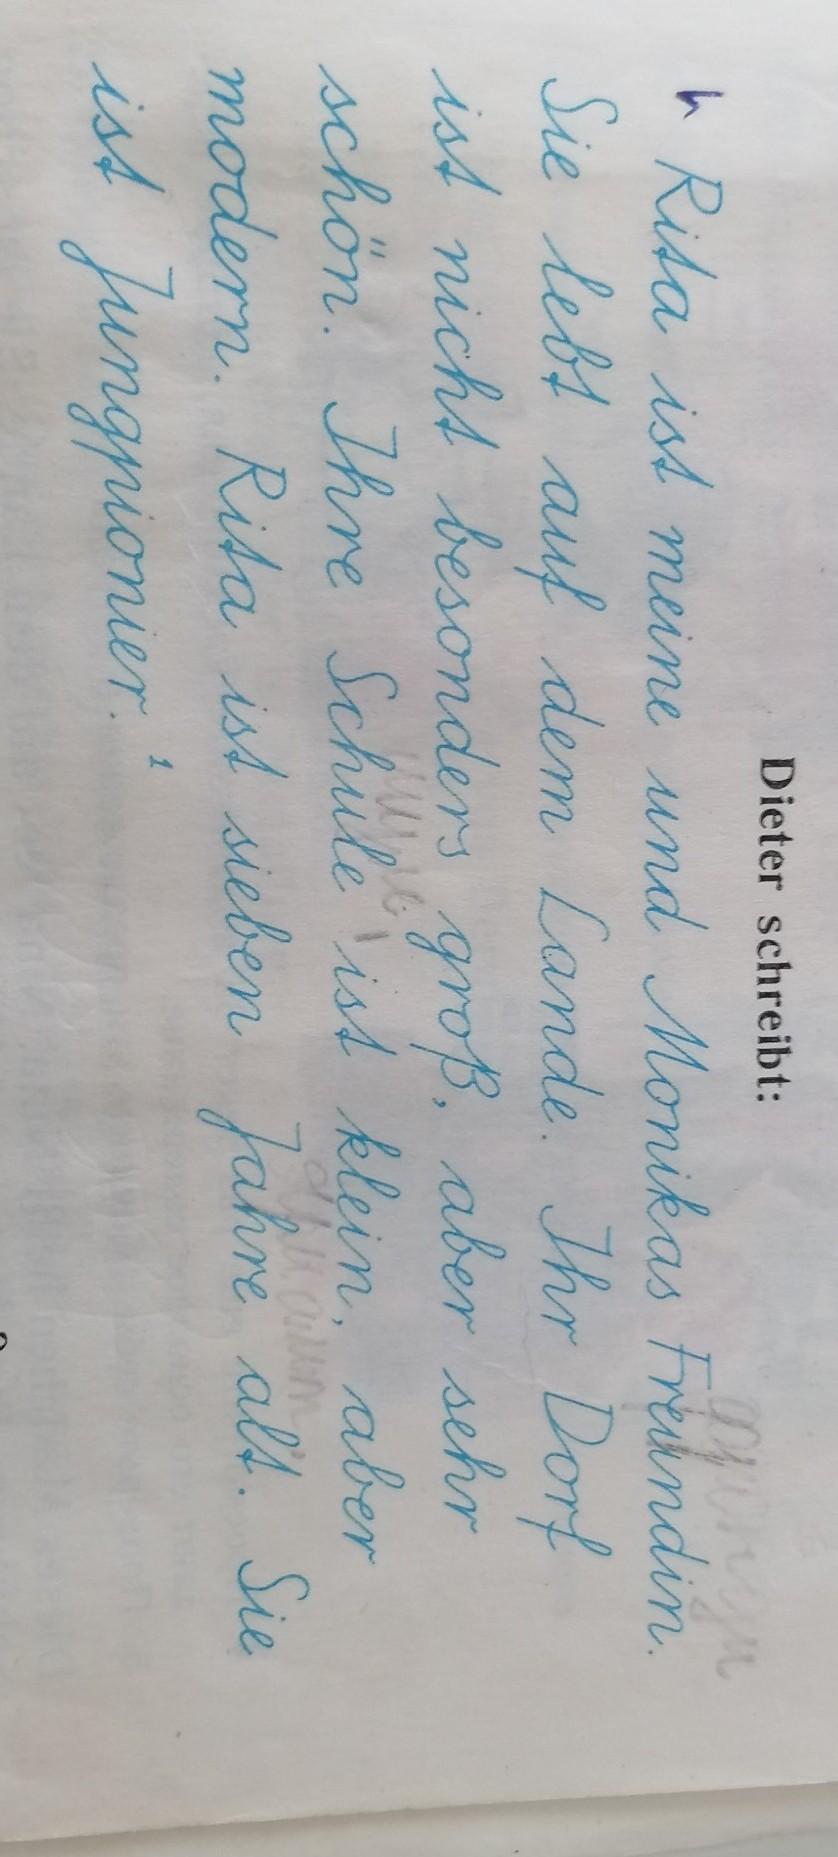 Dieter schreibt:
Rita ist meine und Monikas Freundin.
Sie lebt auf dem Lande. Ihr Dorf
ist nicht besonders groß, aber sehr
schön. Ihre Schule ist klein, aber
modern. Rita ist sieben Jahre alt. Sie
ist Jungpionier.¹